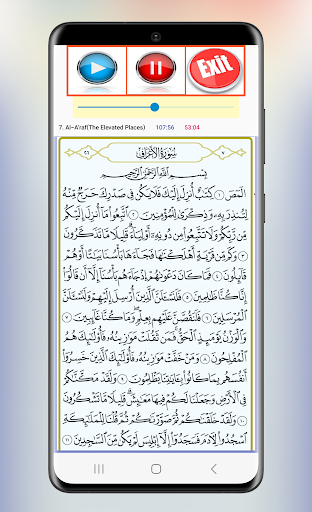 Exit
7. Al-A'raf(The Elevated Places) 107:56 53:04
٧ سُورَةُ الأَعْرَافِ
بِسْمِ اللَّهِ الرَّحْمَٰنِ الرَّحِيمِ
الٓمٓصٓ ١ كِتَٰبٌ أُنزِلَ إِلَيْكَ فَلَا يَكُن فِي صَدْرِكَ حَرَجٌ مِّنْهُ
لِتُنذِرَ بِهِ وَذِكْرَىٰ لِلْمُؤْمِنِينَ ٢ اتَّبِعُوا مَا أُنزِلَ إِلَيْكُم
مِّن رَّبِّكُمْ وَلَا تَتَّبِعُوا مِن دُونِهِ أَوْلِيَاءَ قَلِيلًا مَّا تَذَكَّرُونَ ٣
وَكَم مِّن قَرْيَةٍ أَهْلَكْنَٰهَا فَجَاءَهَا بَأْسُنَا بَيَٰتًا أَوْ هُمْ
قَائِلُونَ ٤ فَمَا كَانَ دَعْوَىٰهُمْ إِذْ جَاءَهُم بَأْسُنَا إِلَّا أَن قَالُوا
إِنَّا كُنَّا ظَٰلِمِينَ ٥ فَلَنَسْـَٔلَنَّ الَّذِينَ أُرْسِلَ إِلَيْهِمْ وَلَنَسْـَٔلَنَّ
الْمُرْسَلِينَ ٦ فَلَنَقُصَّنَّ عَلَيْهِم بِعِلْمٍ وَمَا كُنَّا غَائِبِينَ ٧
وَالْوَزْنُ يَوْمَئِذٍ الْحَقُّ فَمَن ثَقُلَتْ مَوَٰزِينُهُ فَأُولَٰئِكَ هُمُ
الْمُفْلِحُونَ ٨ وَمَنْ خَفَّتْ مَوَٰزِينُهُ فَأُولَٰئِكَ الَّذِينَ خَسِرُوا
أَنفُسَهُم بِمَا كَانُوا بِـَٔايَٰتِنَا يَظْلِمُونَ ٩ وَلَقَدْ مَكَّنَّٰكُمْ
فِي الْأَرْضِ وَجَعَلْنَا لَكُمْ فِيهَا مَعَٰيِشَ قَلِيلًا مَّا تَشْكُرُونَ
١٠ وَلَقَدْ خَلَقْنَٰكُمْ ثُمَّ صَوَّرْنَٰكُمْ ثُمَّ قُلْنَا لِلْمَلَٰئِكَةِ
اسْجُدُوا لِـَٔادَمَ فَسَجَدُوا إِلَّا إِبْلِيسَ لَمْ يَكُن مِّنَ السَّٰجِدِينَ ١١